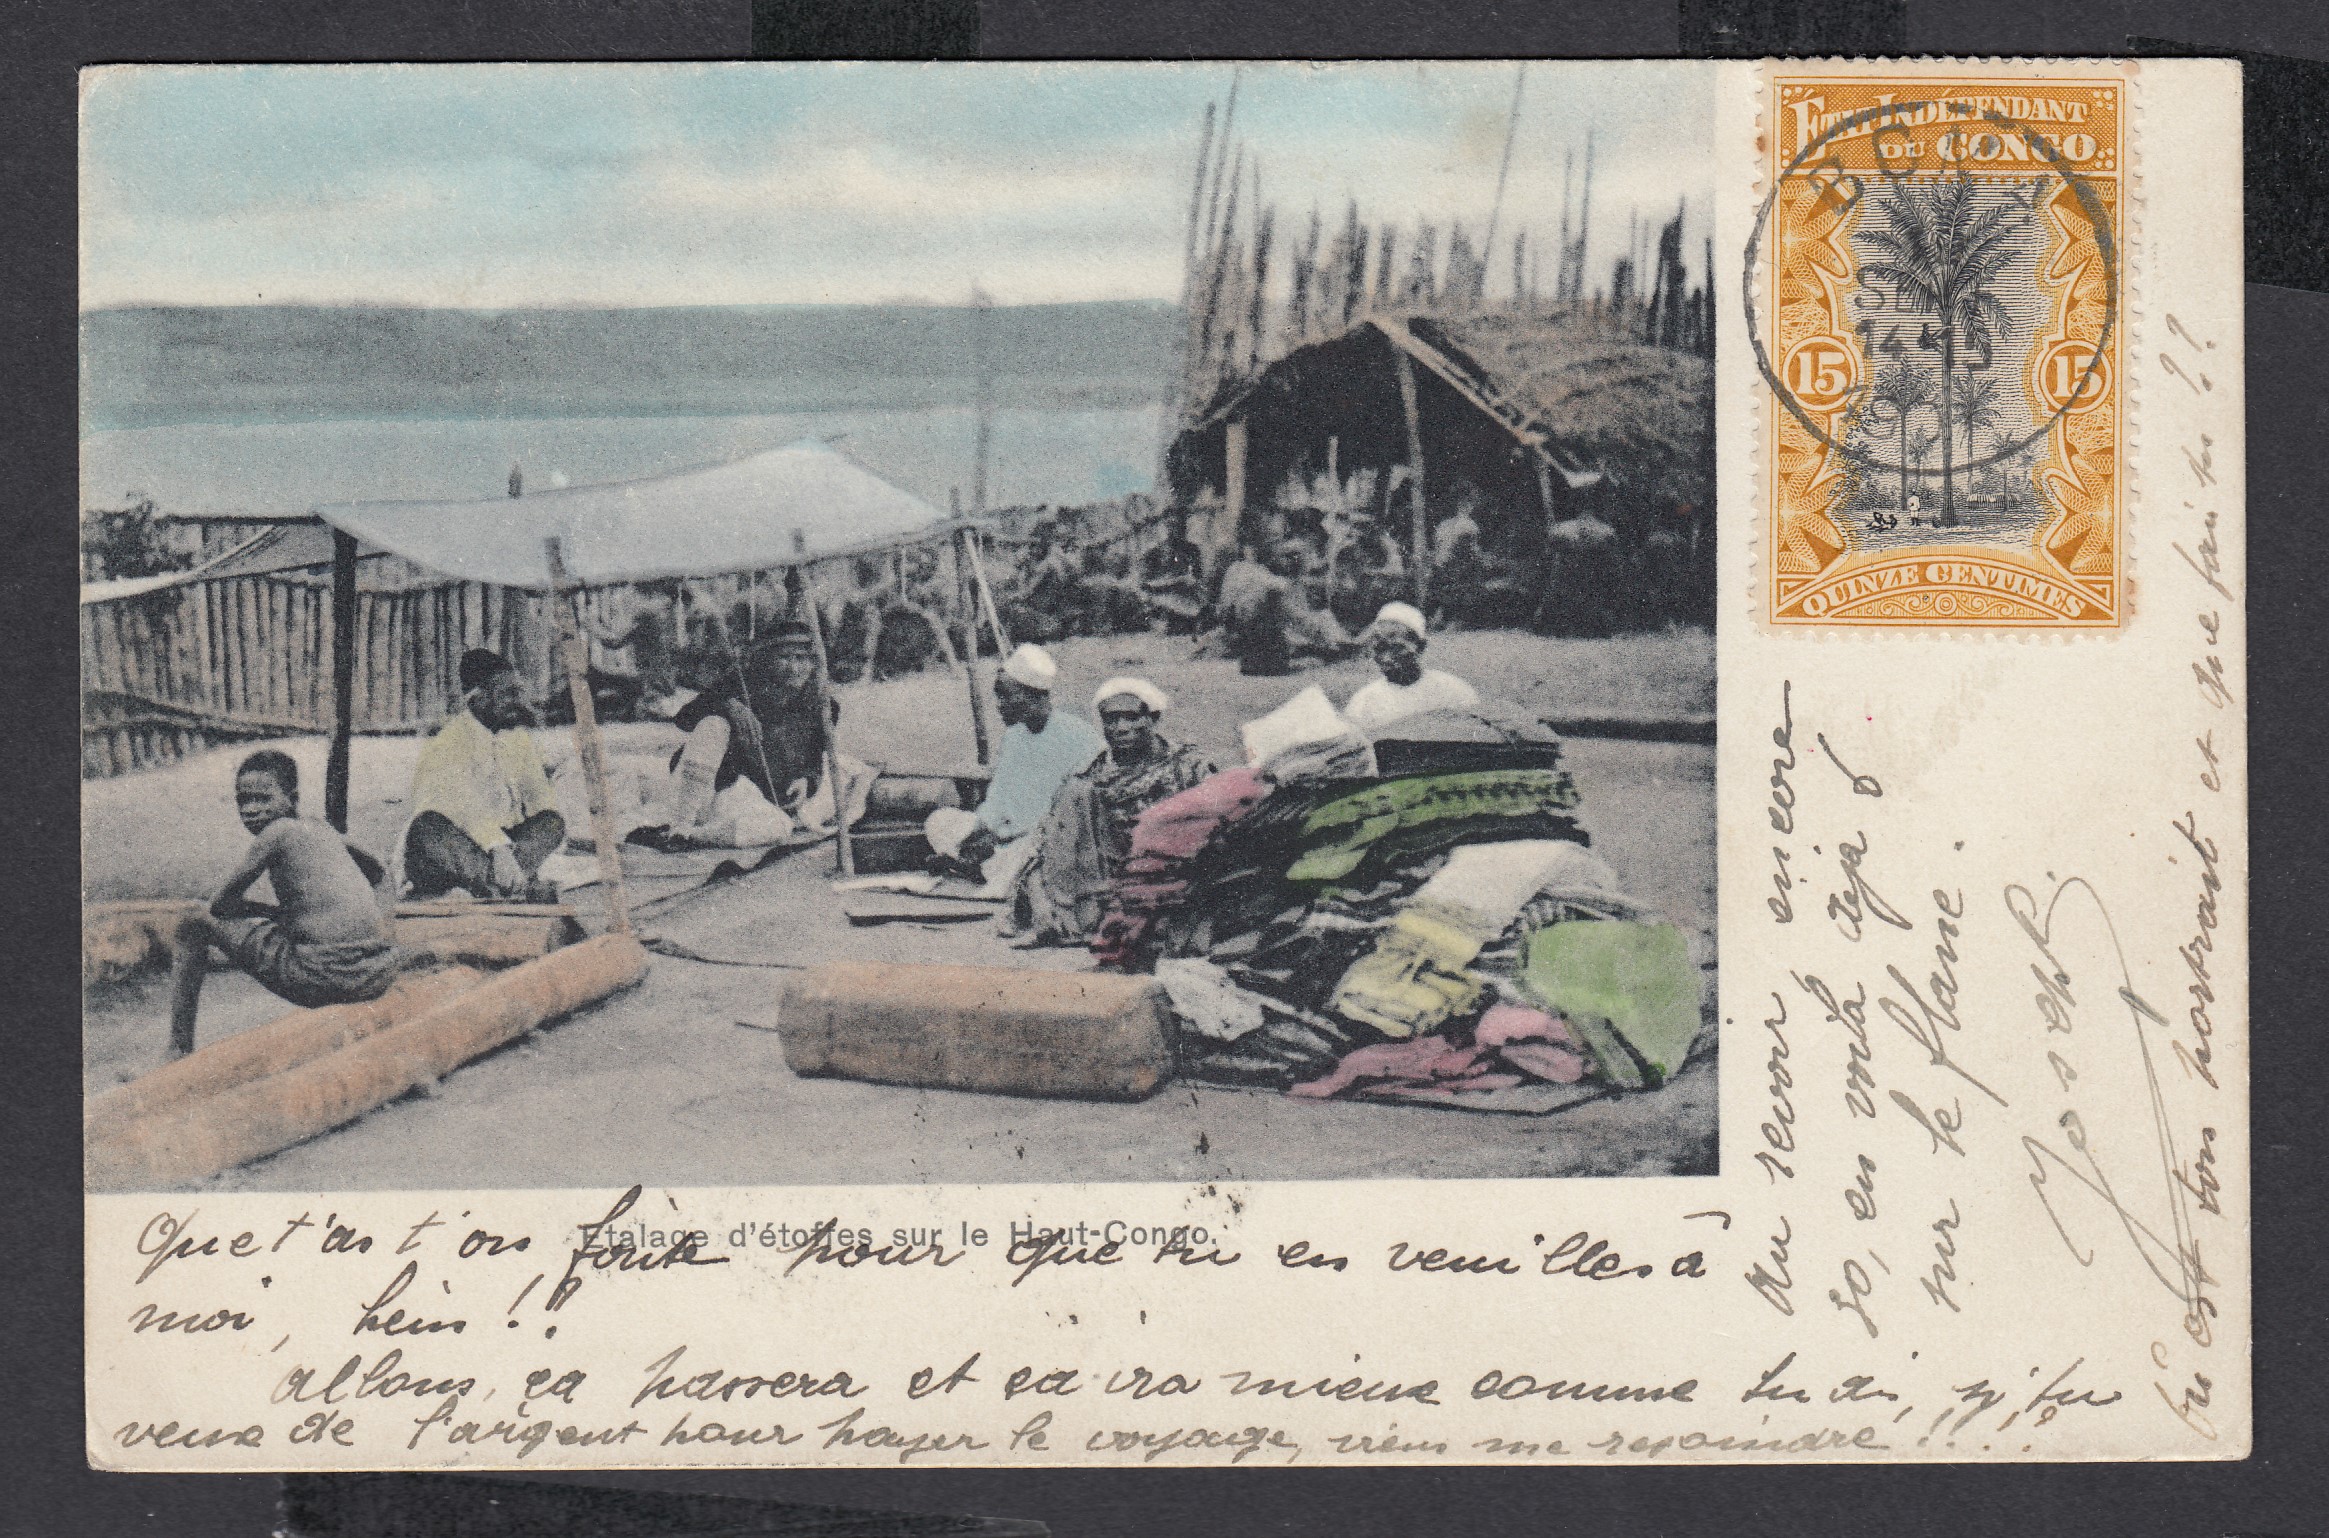 ETAT INDÉPENDANT
DU CONGO
BOMA
SE
14
15 15
QUINZE CENTIMES
Etalage d'étoffes sur le Haut-Congo.
Que t'as t'on foute pour que tu en veuilles à
moi, hein!?
allons, ça passera et ça ira mieux comme tu dis, si tu
veux de l'argent pour payer le voyage, viens me rejoindre!!!?
Au revoir, encore
30, en voila deja 6
sur le flanc.
Joseph.
Où est ton portrait et que fais tu??